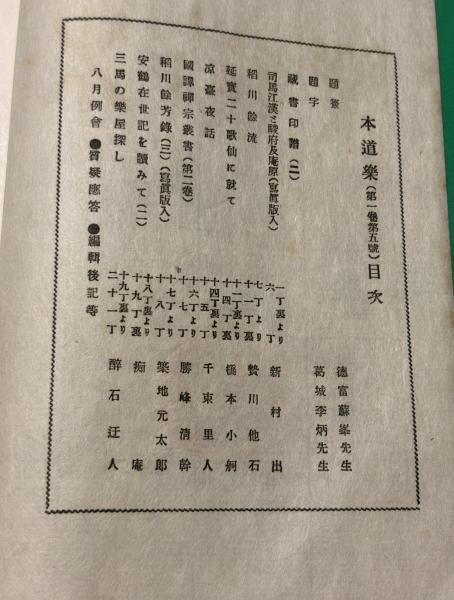 本道樂（第一卷第五號）目次
題簽　德富蘇峯先生
題字　葛城李炳先生
藏書印譜（二）
司馬江漢と駿府及庵原（寫眞版入）　一丁裏より六丁　新村出
稻川餘流　七丁より十一丁裏　贄川他石
延寶二十歌仙に就て　十二丁裏より十四丁裏　橋本小舸
凉臺夜話　十四丁裏より十五丁　千束里人
國譯禪宗叢書（第二卷）　十六丁より十七丁　勝峰清幹
稻川餘芳錄（三）（寫眞版入）　十七丁より十八丁　築地元太郎
安鶴在世記を讀みて（二）　十八丁裏より十九丁裏　痴庵
三馬の樂屋探し　十九丁裏より二十一丁　醉石迂人
八月例會　●質疑應答　●編輯後記等